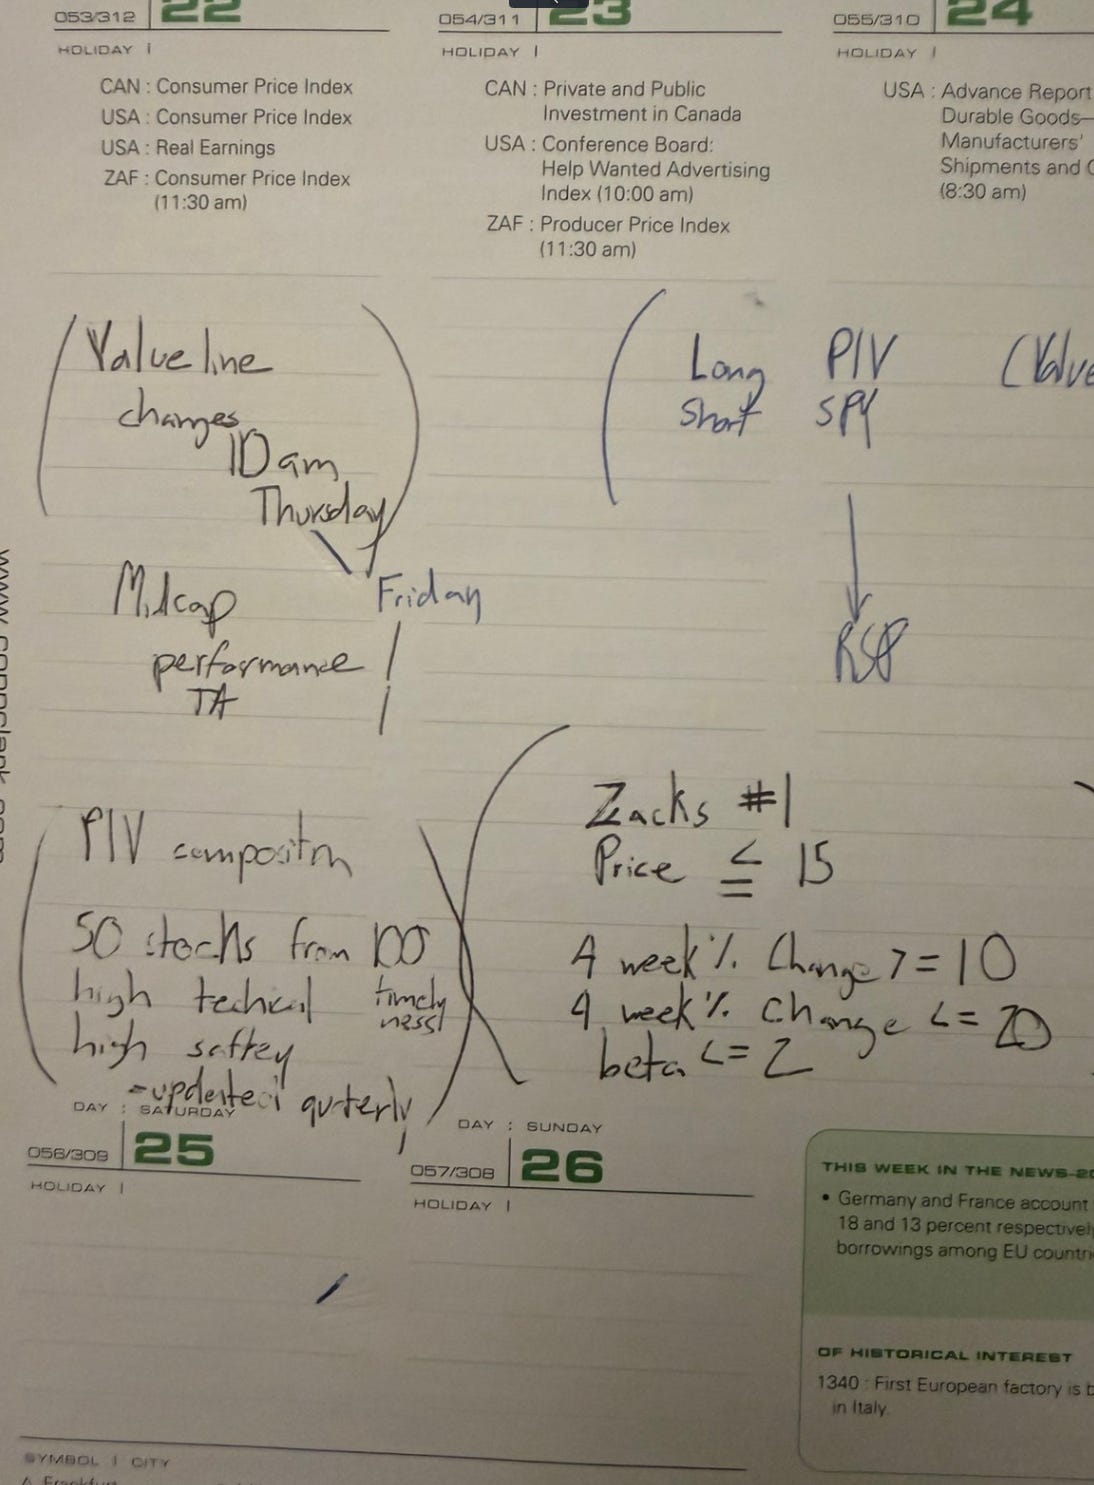 053/312 22
HOLIDAY |
CAN : Consumer Price Index
USA : Consumer Price Index
USA : Real Earnings
ZAF : Consumer Price Index
(11:30 am)
054/311 23
HOLIDAY |
CAN : Private and Public
Investment in Canada
USA : Conference Board:
Help Wanted Advertising
Index (10:00 am)
ZAF : Producer Price Index
(11:30 am)
055/310 24
HOLIDAY |
USA : Advance Report
Durable Goods—
Manufacturers'
Shipments and
(8:30 am)
Value line
changes
10 am
Thursday
Friday
Midcap
performance
TA
Long PIV (Value
Short SPY
RSP
PIV compositn
50 stocks from 100
high techical timely
ness
high saftey
-updated quterly
Zacks #1
Price ≤ 15
4 week % Change >= 10
4 week % Change <= 20
beta <= 2
DAY : SATURDAY
056/309 25
HOLIDAY |
DAY : SUNDAY
057/308 26
HOLIDAY |
THIS WEEK IN THE NEWS–20
• Germany and France account
18 and 13 percent respectively
borrowings among EU countri
OF HISTORICAL INTEREST
1340 : First European factory is b
in Italy.
SYMBOL | CITY
A Frankfurt